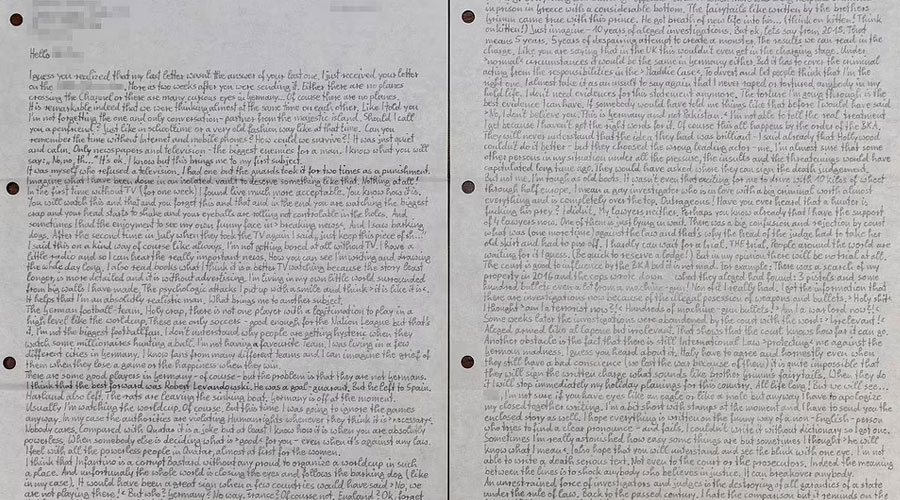 Hello
I guess you realized that my last letter wasnt the answer of your last one. I just received your letter
on the
Here as two weeks after you were sending it. Either there are no planes
crossing the Channel or there are many curious eyes in germany... Of course there are no planes.
It is remarkable indeed that we can thinking almost at the same time on each other. Like I told you
I'm not forgetting the one and only conversation-partner from the majestic island. Should I call
you a penfriend? Just like in schooltime or a very old fashion way like at that time. Can you
remember the time without internet and mobile phones? How could we survive?! It was just quiet
and calm. Only newspapers and television - the biggest enemies for a man. I know what you will
say: No, no, th..." It's ok, I know but this brings me to my first subject.
It was myself who refused a television, I had one but the guards took it for two times as a punishment.
Imagine what have been done in an isolated vault to deserve something like that. Nothing at all!
In the first time without TV (for one week) I found live much more acceptable, you know how it is.
You will watch this and that and you forget this and that and in the end you are watching the biggest
crap and your head starts to shake and your eyeballs are rolling not controllable in the holes. And
sometimes that the enjoyment to see my own funny face in >breaking news<. And I saw barking
dogs. After the second time in july when they took the TV again I said, just keep this piece of sh...
I said this on a kind way of course like always. I'm not getting bored at all without TV. I have a
little radio and so I can hear the really important news. How you can see I'm writing and drawing
the whole day long. I also read books what I think is a better TV watching because the story least
longer, is more detailed and it is without advertising. I'm living in my own little world surrounded
from big walls I have made. The psychologic attacks I put up with a smile and think >it is like it is<.
It helps that I'm an absolutly realistic man. What brings me to another subject.
The german football-team. Holy crap, there is not one player with a legitimation to play in a
high level like the worldcup. These are only soccers - good enough for the Nation League but that's
it. I'm not the biggest footballfan, I don't understand why people are getting hysteric when they
watch some millionaires hunting a ball. I'm not having a favourite team, I was living in a few
different cities in Germany. I know fans from many different teams and I can imagine the grief of
them when they lose a game or the happines when they win.
There are some good players in Germany - of course - but the problem is that they are not Germans.
I think that the best forward was Robert Levandowski. He was a goal-guarant, but he left to Spain.
Harland also left. The rats are leaving the sinking boat, Germany is off at the moment.
Usually I'm watching the worldcup. Of course, but this time I was going to ignore the games
anyway. In my case the authorities are violating Humanrights whenever they think it is >necessary<.
Nobody cares. Compared with Quatar it is a joke but at least I know how it is when you are absolutely
powerless. When somebody else is deciding what is >good< for you - even when it's against any law.
I feel with all the powerless people in Quatar, almost at first for the women.
I think that Infantino is a corrupt bastard without any proud to organize a worldcup in such
a place. And unfortunately the whole world is closing the eyes and follows the barking dog. (like
in my case). It would have been a great sign when a few countries would have said: >No, we
are not playing there!< But who? Germany? No way, France? Of course not. England? Ok, forget
in prison in Greece with a considerable bottom. The fairytails like written by the brothers
Grimm came true with this prince. He got breath of new life into his... (think on kitten! Think
on kitten!) Just imagine - 10 years of alleged investigations. But ok, lets say from 2015. That
means 5 years. 5 years of despairing attempt to create a monster. The results we can read in the
charge. Like you are saying that in the UK this wouldn't even get in the charging state. Under
>normal< circumstances it would be the same in Germany either. But it has to cover the criminal
acting from the responsibilities in the >Maddie case<. To divert and let people think that I'm the
right one. I almost take it as an insult to say again that I never raped or tortured anybody in my
hold life. I don't need evidences for this obserwed anymore. The tortue I'm going through is the
best evidence I can have. If somebody would have told me things like that before I would have said
>No, I don't believe you. This is Germany and not Pakistan.< I'm not able to tell the real treatment
I get because I haven't got the right words for it. Of course this all happens by the order of the BKA,
they will never understand that the idea they had was brilliant. I said already that Hollywood
couldn't do it better - but they choosed the wrong leading actor - me. I'm almost sure that some
other persons in my situation under all the pressure, the insults and the threatenings would have
capitulated long time ago. They would have asked where they can sign the death judgement.
But not me, I'm rough as old boots. It wasn't even that exciting for me to drive with 40 kilos of wheet
through half europe. I mean a gay investigator who is in love with a big criminal worth almost
everything and is completely over the top. Outrageous! Have you ever heard that a hunter is
fucking his prey? I didn't. My lawyers neither. Perhaps you know already that I have the support
of 4 lawyers now. One of them is just flying in well. There was a big confession and rejection by court
what was (one more time) against the law and that's why the head of the judge had to take her
old skirt and had to one off. I hardly can wait for a trial. THE trial. People around the world are
waiting for it I guess. (Be quick to reserve a lodge!) But in my opinion there will be no trial at all.
The court is good to influence by the BKA but it is not good. For example: There was a search of my
property in 2016 and the cops wrote down what they alleged had found: 3 pistols and some
hundred bullets even a lot from a machine-gun! Non of it I really had. I got the information that
there are investigations now because of the illegal possesion of weapons and bullets. >Holy shit<
I thought >am I a terrorist now?!< Hundreds of machine-gun bullets?! >Am I a war lord now?!<
Some weeks later the investigations were abandoned by the court with the words: >irrelevant!<
Alleged armed like al capone but irrelevant. That shows that the court knows how far it can go.
Another obstacle is the fact that there is still International Law >protecting< me against the
German madness. I guess you heard about it. Italy have to agree and honestly even when
they still have a bad conscience (we lost the war because of them) it is quite impossible that
they will sign the written charge what sounds like brother grimms fairytails. When they do
it I will stop immediately my holiday planings for this country. All life long! But we will see...
I'm not sure if you have eyes like an eagle or like a mole but anyway I have to apologize
my closed together writing. I'm a bit short with stamps at the moment and I have to send you the
enclosed story as well. I hope everything is written on the funny way of a non-english-person
who tries to find a clear pronounce - and fails. I couldn't write it without dictionary so I got one.
Sometimes I'm really astonished how easy some things are but sometimes I thought >he will
know what I mean<. I also hope that you will understand and see the blink with one eye. I'm not
able to write a death serious text. Not even to the court or the prosecutors. Indeed the meaning
between the lines is to shock anybody who believes in justice. It can break or anybody.
An unrestrained force of investigators and judges is the destroying of all garanties of a state
under the rule of law. Back to the passed century. I hate the comparison but it reminds on the